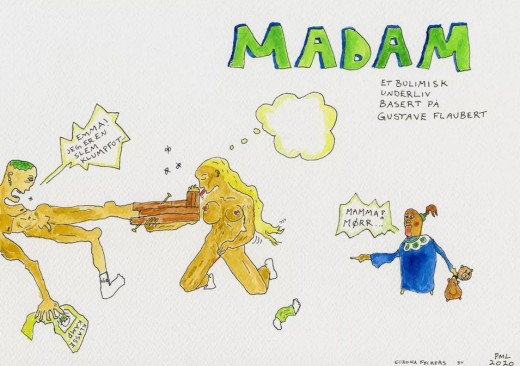 MADAM
ET BULIMISK
UNDERLIV
BASERT PÅ
GUSTAVE FLAUBERT
EMMA!
JEG ER EN
SLEM
KLUMPFOT
MAMMA?
MØRR...
KLASSE
KAMP
PML
2020